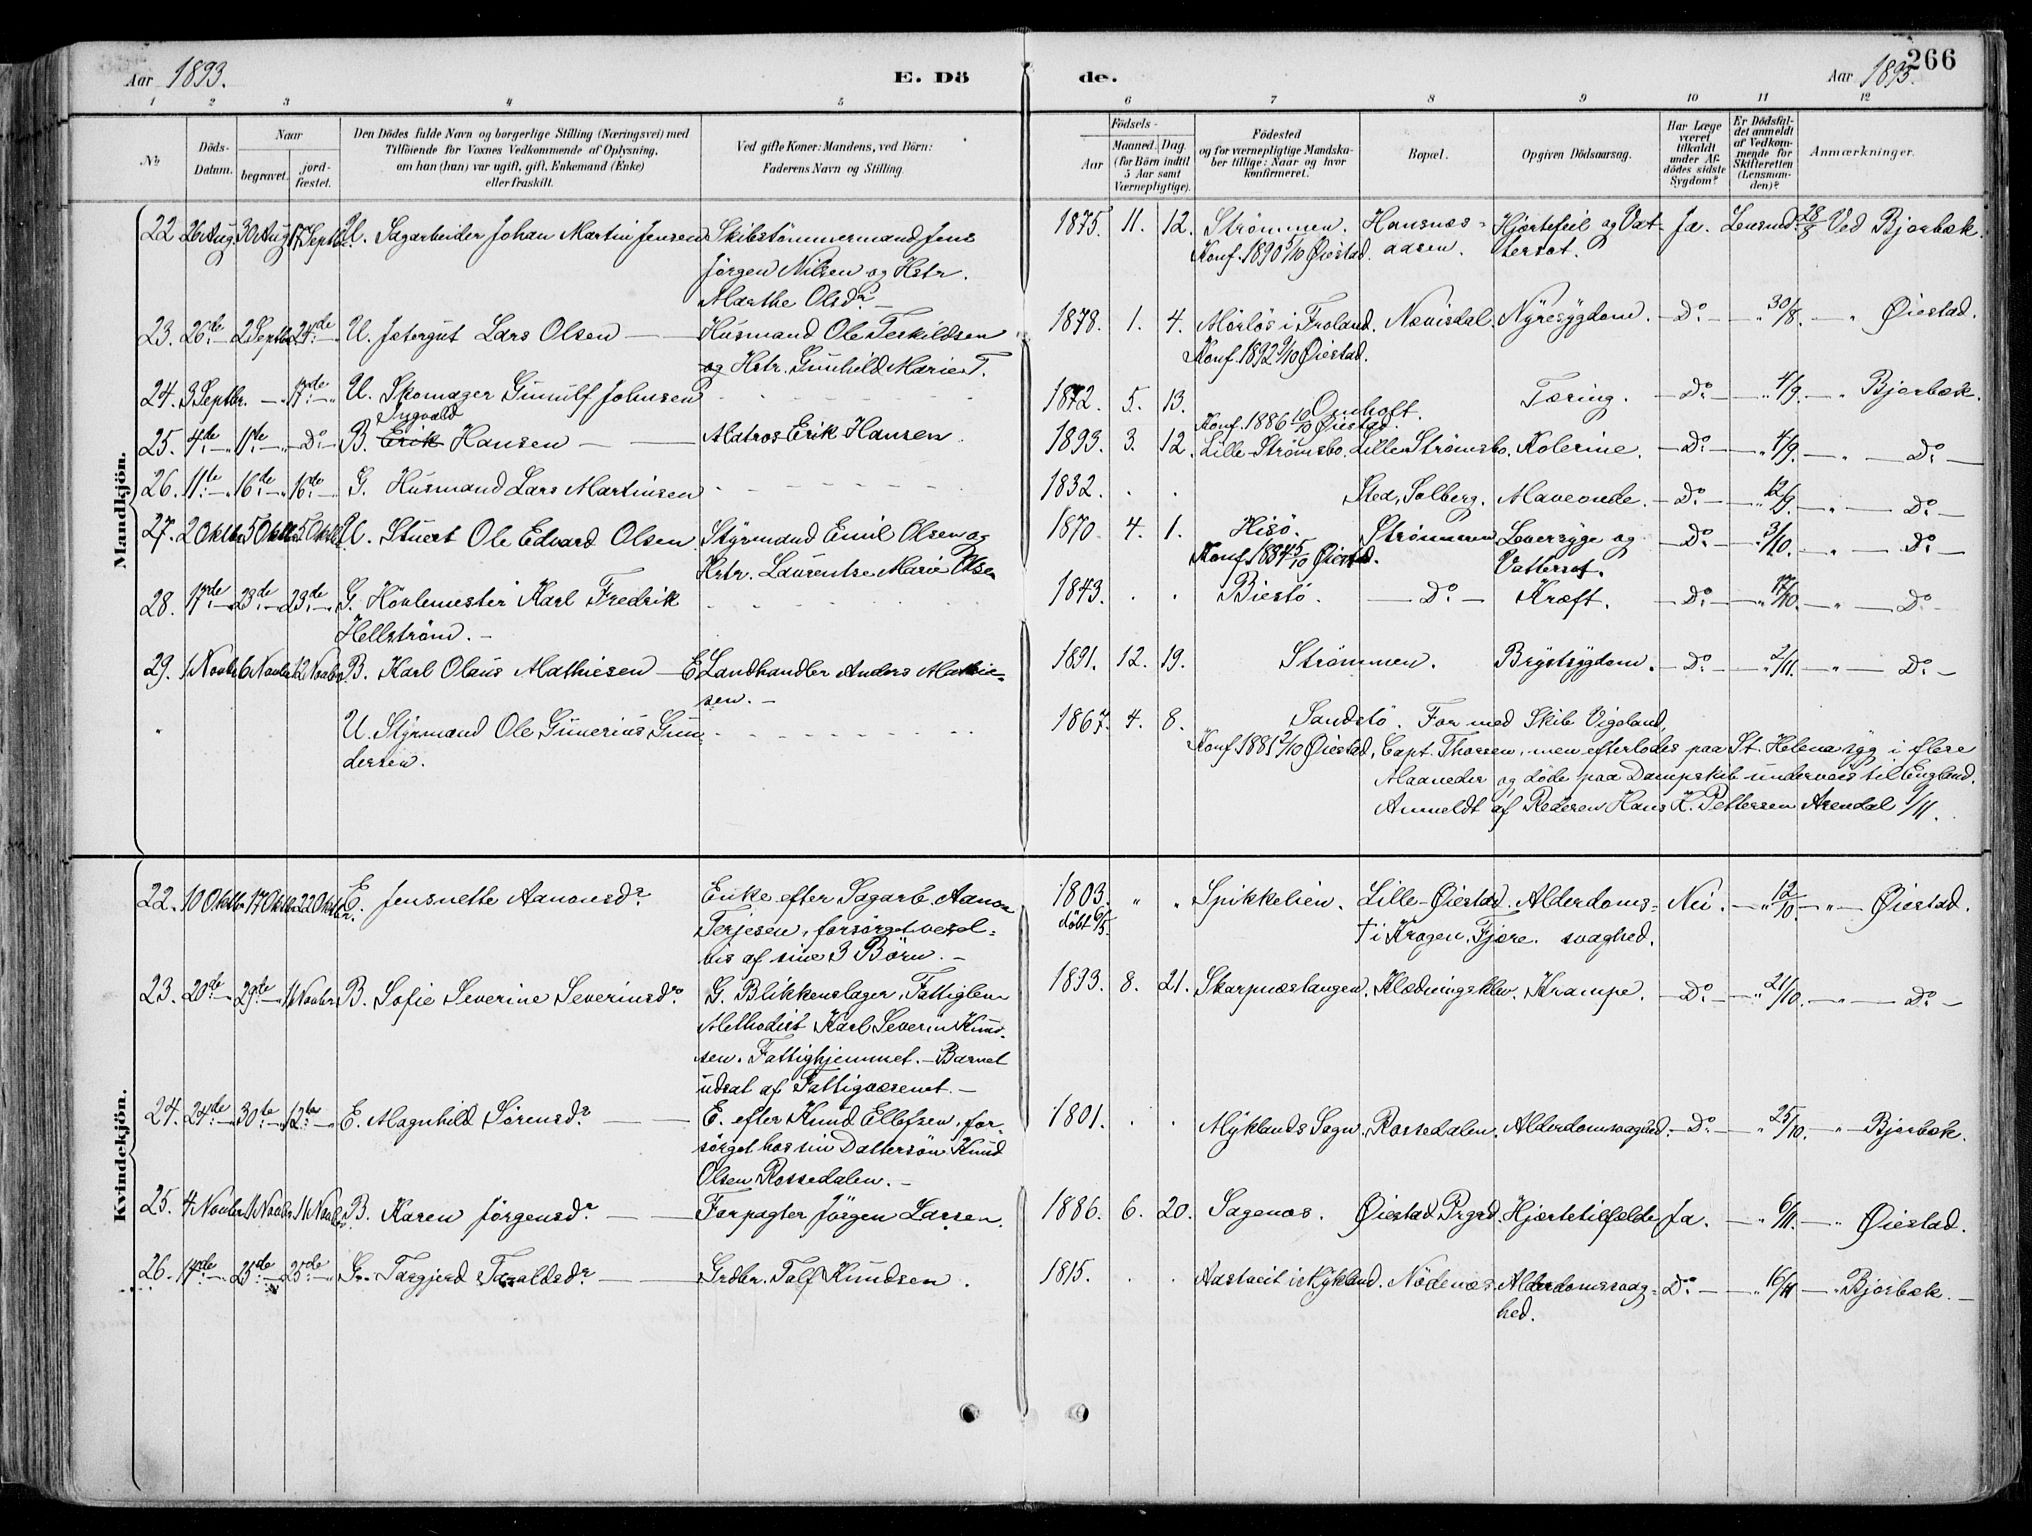 266
Aar 1893. E. Dö de. Aar 1893.
1 2 3 4 5 6 7 8 9 10 11 12
№ Döds-Datum. Naar begravet. jord-fæstet. Den Dödes fulde Navn og borgerlige Stilling (Næringsvei) med Tilföiende for Voxnes Vedkommende af Oplysning, om han (hun) var ugift, gift, Enkemand (Enke) eller fraskilt. Ved gifte Koner: Mandens, ved Börn: Faderens Navn og Stilling. Födsels- Aar Maaned. Dag. (for Börn indtil 5 Aar samt Værnepligtige). Födested og for værnepligtige Mandskaber tillige: Naar og hvor konfirmeret. Bopæl. Opgiven Dödsaarsag. Har Læge været tilkaldt under Afdödes sidste Sygdom? Er Dödsfaldet anmeldt af Vedkommende for Skifteretten (Lensmanden)? Anmærkninger.
Mandkjön.
22. 26 Aug 30 Aug 17 Septbr. U. Sagarbeider Johan Martin Jensen Skibstömmermand Jens 1875. 11. 12. Strömmen. Hansnæs- Hjertefeil og Vat- Ja. Lensmd 28/8 Ved Bjorbæk.
Jörgen Nilsen og Hstr. Konf. 1890 5/10 Øiestad. aasen. tersot.
Marthe Olsdr. –
23. 26de 2 Septbr 24de U. Jætergut Lars Olsen Husmand Ole Terkildsen 1878. 1. 4. Mörlös i Froland. Nævisdal. Nyresygdom. Do 30/8. Øiestad.
og Hstr. Gunhild Marie T. Konf. 1892 9/10 Øiestad.
24. 3 Septbr. 17de U. Skomager Gunulf Johnsen 1872. 5. 13. Omholt. Tæring. Do 4/9. Bjorbæk.
Konf. 1886 10/10 Øiestad.
Sygvald
25. 4de 11te Do B. Erik Hansen Matros Erik Hansen. 1893. 3. 12. Lille Strömsbo. Lille Strömsbo. Kolerine. Do 4/9. Do
26. 11te 16de 16de G. Husmand Lars Martinsen 1832. Sted, Solberg. Maveonde. Do 12/9. Do
27. 2 Oktbr 5 Oktbr 5 Oktbr U. Stuert Ole Edvard Olsen Styrmand Emil Olsen og 1870. 4. 1. Hisö. Strömmen Leversyge og Do 3/10. Do
Hstr. Laurentse Marie Olsen Konf. 1884 5/10 Øiestad. Vattersot.
28. 17de 23de 23de G. Hövlemester Karl Fredrik 1843. Biestö. Do Kræft. Do 17/10. Do
Hellström. –
29. 1 Novbr 6 Novbr 12 Novbr. B. Karl Olaus Mathiesen E. Landhandler Anders Mathie- 1891. 12. 19. Strömmen. Brystsygdom. Do 2/11. Do
sen. –
U. Styrmand Ole Gunerius Gun- 1867. 4. 8. Sandstö. For med Skib Vigeland,
dersen. Konf. 1881 2/10 Øiestad, Capt. Thorsen, men efterlodes paa St. Helena syg i flere
Maaneder og döde paa Dampskib underveis til England.
Anmeldt af Rederen Hans K. Pettersen Arendal 9/11.
Kvindekjön.
22. 10 Oktbr 17 Oktbr 22 Oktbr. E. Jensnette Aanonsdr Enke efter Sagarb. Aanon 1803. Spikkelien. Lille Øiestad. Alderdoms- Nei. 12/10. Øiestad.
Terjesen, forsörget vexel- döbt 6/5. † i Krogen, Fjære. svaghed.
vis af sine 3 Börn. –
23. 20de 29de 11 Novbr. B. Sofie Severine Severinsdr. G. Blikkenslager, Fattiglem 1893. 8. 21. Skarpnæstangen. Klædningsklev. Krampe. Do 21/10. Do
Methodist Karl Severin Knud-
sen. Fattighjemmet. – Barnet
udsat af Fattigvæsenet. –
24. 24de 30te 12te E. Magnhild Sörensdr. E. efter Knud Ellefsen, for- 1801. Myklands Sogn. Rossedalen. Alderdomsvaghed. Do 25/10. Bjorbæk.
sörget hos sin Dattersön Knud
Olsen Rossedalen. –
25. 4 Novbr. 11 Novbr. 11 Novbr. B. Karen Jörgensdr. Forpagter Jörgen Larsen. 1886. 6. 20. Sagenæs. Øiestad Prgrd. Hjertetilfælde Ja. 6/11. Øiestad.
26. 14de 25de 25de G. Targjerd Taraldsdr. Grdbr. Talf Knudsen. 1815. Aasteveit i Mykland. Nödenæs. Alderdomssvag- Do 16/11. Bjorbæk.
hed.